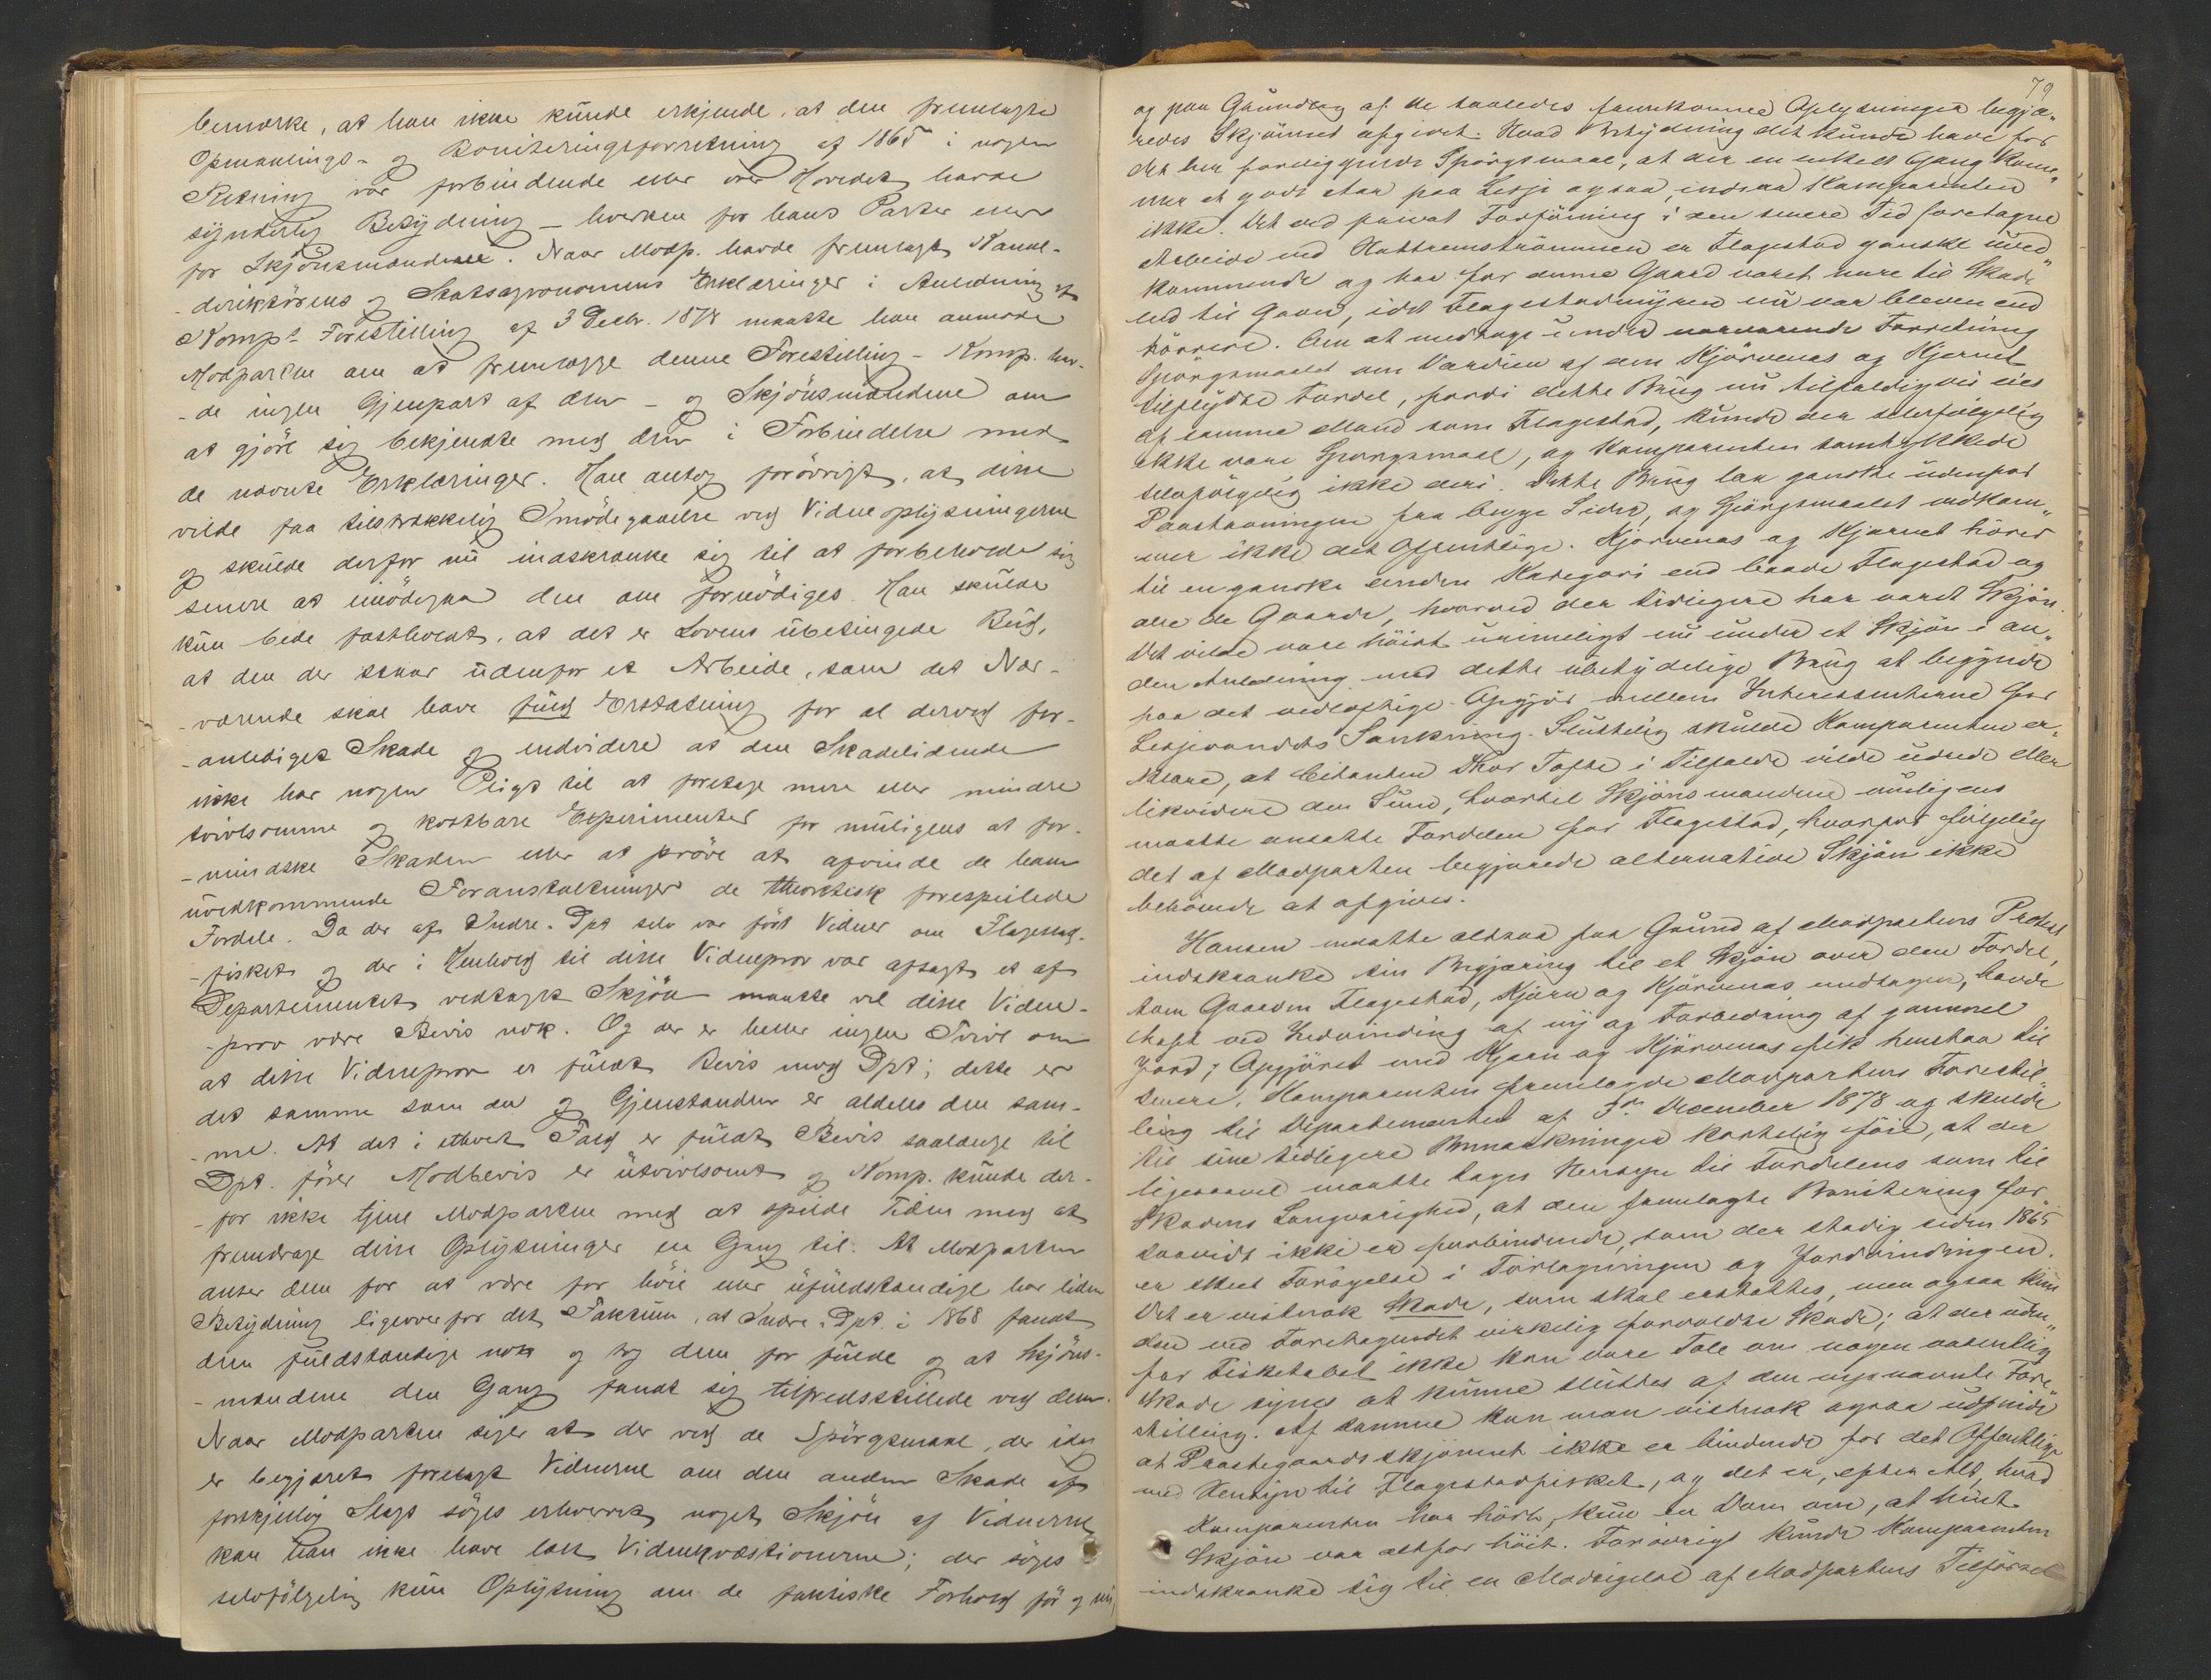 bemærke, at han ikke kunde erkjende, at den fremlagte
Opmaalings- og Boniteringsforretning af 1865 i nogen
Retning var forbindende eller over Hovedet havde
synderlig Betydning – hverken for hans Parter eller
for Skjönsmændene. Naar Modp. havde fremlagt Kanal-
-direktörens og Statsagronomens Erklæringer i Anledning af
Komps Forestilling af 3 Decbr. 1878 maatte han anmode
Modparten om at fremlægge denne Forestilling – Komp. hav-
-de ingen Gjenpart af den – og Skjönsmændene om
at gjöre sig bekjendte med den i Forbindelse med
de nævnte Erklæringer. Han antog forövrigt, at disse
vilde faa tilstrækkelig Imödegaaelse ved Vidneoplysningerne
og skulde derfor nu indskrænke sig til at forbeholde sig
senere at imödegaa dem om fornödiges. Han skulde
kun bede fastholdt, at det er Lovens ubetingede Bud,
at den der staar udenfor et Arbeide, som det Nær-
-værende skal have fuld Erstatning for al derved for-
-anlediget Skade og endvidere at den Skadelidende
ikke har nogen Pligt til at foretage mere eller mindre
tvivlsomme og kostbare Experimenter for muligens at for-
-mindske Skaden eller at pröve at afvinde de ham
uvedkommende Foranstaltninger de theoretisk forespeilede
Fordele. Da der af Indre-Dpt selv var fört Vidner om Flagestad-
-fisket og der i Henhold til disse Vidneprov var afsagt et af
Departementet vedtaget Skjön maatte vel disse Vidne-
-prov være Bevis nok. Og der er heller ingen Tvivl om
at disse Vidneprov er fuldt Bevis mod Dpt; dette er
det samme som da og Gjenstanden er aldeles den sam-
-me. At det i ethvert Fald er fuldt Bevis saalænge til
Dpt. förer Modbevis er utvivlsomt og Komp. kunde der-
-for ikke tjene Modparten med at spilde Tiden med at
fremdrage disse Oplysninger en Gang til. At Modparten
anser dem for at være for höie eller ufuldstændige har liden
Betydning ligeoverfor det Faktum, at Indre-Dpt. i 1868 fandt
dem fuldstændige nok og tog dem for fulde og at Skjöns-
-mændene den Gang fandt sig tilfredsstillede ved dem.
Naar Modparten siger at der ved de Spörgsmaal, der idag
er begjæret forelagt Vidnerne om den anden Skade af
forskjellig Slags söges erhvervet noget Skjön af Vidnerne
kan han ikke have læst Vidneqvæstionerne; der söges
selvfölgelig kun Oplysning om de faktiske Forhold för og nu,
79
og paa Grundlag af de saaledes fremkomne Oplysninger begjæ„
redes Skjönnet afgivet. Hvad Betydning det kunde have for
det her foreliggende Spörgsmaal, at der en enkelt Gang kom„
mer et godt Aar paa Lesje ogsaa, indsaa Komparenten
ikke. Det ved privat Forföining i den senere Tid foretagne
Arbeide ved Hattremströmmen er Flagestad ganske uved„
kommende og har for denne Gaard været mere til Skade
end til Gavn, idet Flagestadmyren nu var bleven end
törrere. Om at medtage under nærværende Forretning
Spörgsmaalet om Værdien af den Kjörvenæs og Kjernet
tilflydte Fordel, fordi dette Brug nu tilfældigvis eies
af samme Mand som Flagestad, kunde der selvfölgelig
ikke være Spörgsmaal, og Komparenten samtykkede
selvfölgelig ikke deri. Dette Brug laa ganske udenfor
Paastævningen fra begge Sider, og Spörgsmaalet vedkom„
mer ikke det Offentlige. Kjörvenæs og Kjernet hörer
til en ganske anden Kategori end baade Flagestad og
alle de Gaarde, hvorved der tidligere har været Skjön.
Det vilde være höist urimeligt nu under et Skjön i an„
den Anledning med dette ubetydelige Brug at begynde
paa det vidtløftige Opgjör mellem Interessenterne for
Lesjevandets Sænkning. Sluttelig skulde Komparenten er„
klære, at Citanten Thor Tofte i Tilfælde vilde udrede eller
likvidere den Sum, hvortil Skjönsmændene muligens
maatte ansætte Fordelen for Flagestad, hvorfor fölgelig
det af Modparten begjærede alternative Skjön ikke
behövede at afgives.
Hansen maatte altsaa paa Grund af Modpartens Protest
indskrænke sin Begjæring til et Skjön over den Fordel,
som Gaarden Flagestad, Kjörn og Kjörvenæs undtagen, havde
havt ved Indvinding af ny og Forbedring af gammel
Jord; Opgjöret med Kjern og Kjörvenæs fik henstaa til
senere. Komparenten fremlagde Modpartens Forestil„
ling til Departementet af 3die December 1878 og skulde
til sine tidligere Bemærkninger kortelig föie, at der
ligesaavel maatte tages Hensyn til Fordelens som til
Skadens Langvarighed, at den fremlagte Bonitering for„
saavidt ikke er forbindende, som der stadig siden 1865
er skeet Forögelse i Törlægningen og Jordvindingen.
Det er vistnok Skade, som skal erstattes, men ogsaa kun
den ved Foretagendet virkelig forvoldte Skade; at der uden„
for Fisketabet ikke kan være Tale om nogen væsentlig
Skade synes at kunne sluttes af den nysnævnte Fore„
stilling. Af samme kan man vistnok ogsaa udfinde
at Præstegaardsskjönnet ikke er bindende for det Offentlige
med Hensyn til Flagestadfisket, og det er, efter Alt, hvad
Komparenten har hört, kun en Dom om, at hint
Skjön var altfor höit. Forövrigt kunde Komparenten
indskrænke sig til en Modsigelse af Modpartens Tilförsel